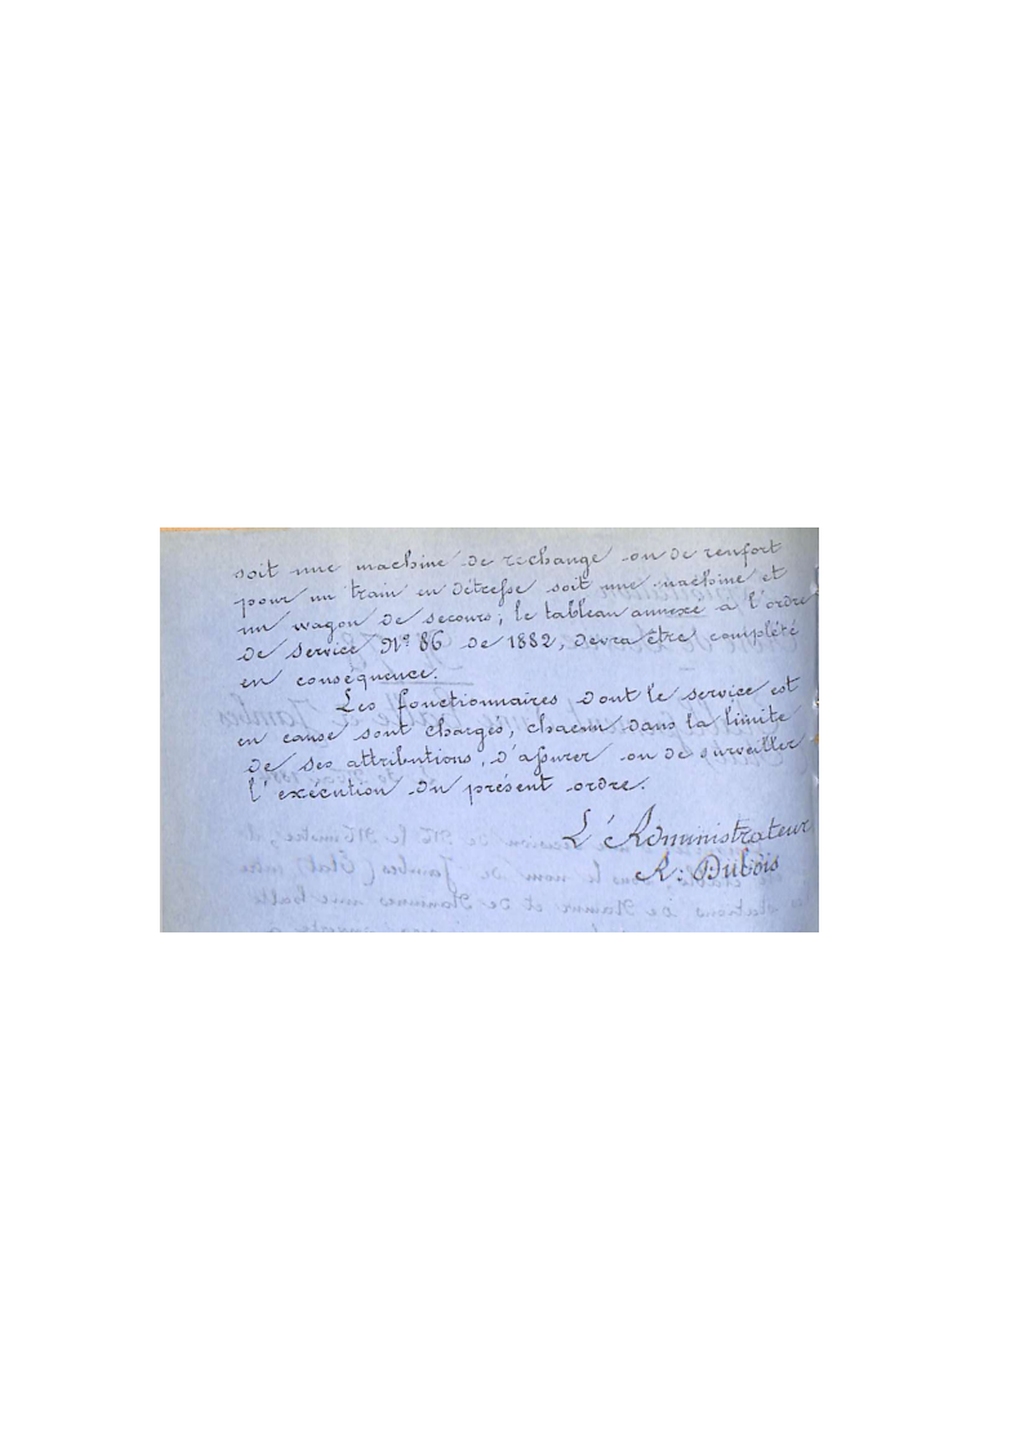 soit une machine de rechange ou de renfort
pour un train en détresse soit une machine et
un wagon de secours; le tableau annexé a l'ordre
de service N° 86 de 1882, devra être complété
en conséquence.
Les fonctionnaires dont le service est
en cause sont chargés, chacun dans la limite
de ses attributions, d'assurer ou de surveiller
l'exécution du présent ordre.
L'Administrateur
A: Dubois